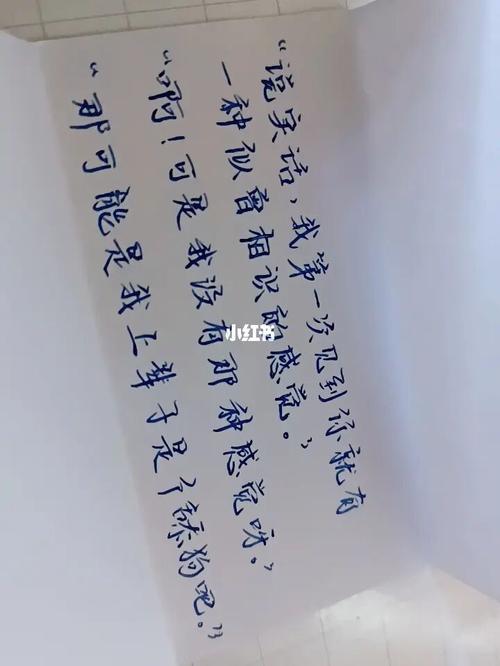 “说实话，我第一次见到你就有
一种似曾相识的感觉。”
“啊！可是我没有那种感觉呀。”
“那可能是我上辈子是个舔狗吧。”
小红书